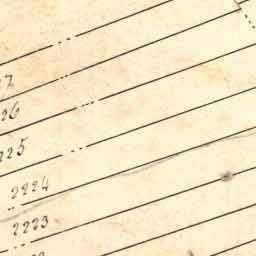 27
26
225
2224
2223